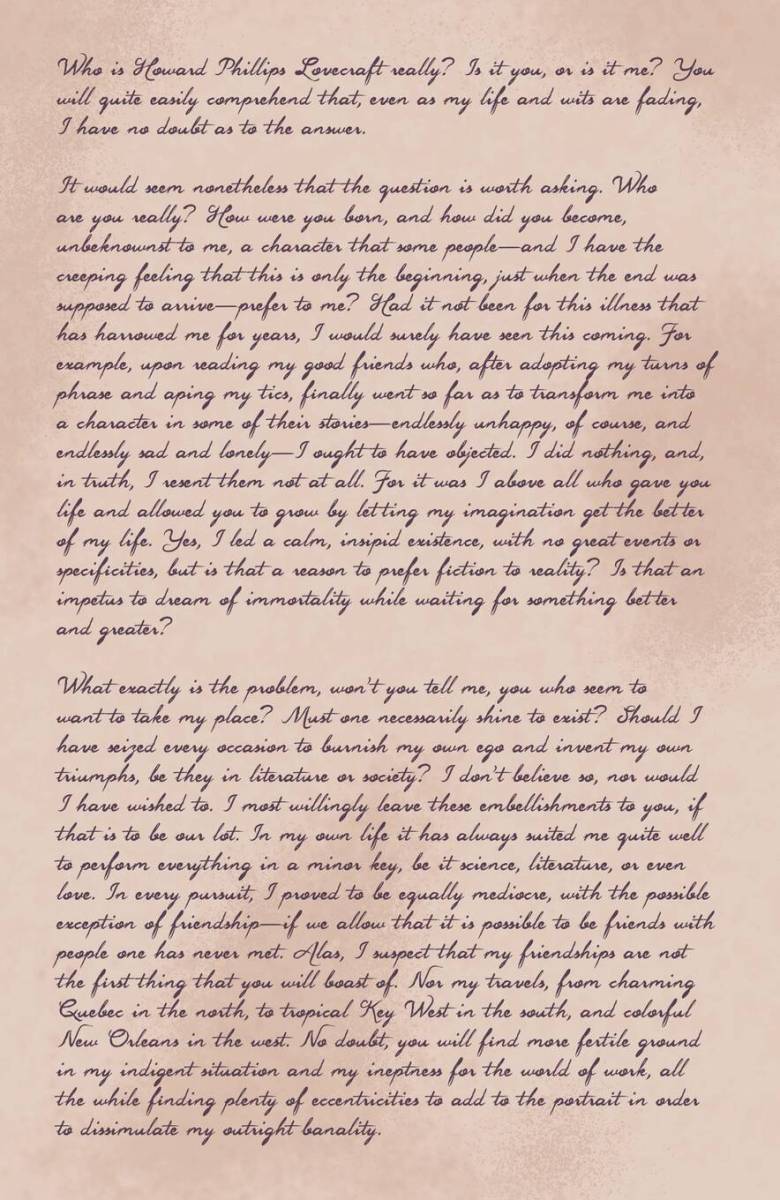 Who is Howard Phillips Lovecraft really? Is it you, or is it me? You
will quite easily comprehend that, even as my life and wits are fading,
I have no doubt as to the answer.
It would seem nonetheless that the question is worth asking. Who
are you really? How were you born, and how did you become,
unbeknownst to me, a character that some people—and I have the
creeping feeling that this is only the beginning, just when the end was
supposed to arrive—prefer to me? Had it not been for this illness that
has harrowed me for years, I would surely have seen this coming. For
example, upon reading my good friends who, after adopting my turns of
phrase and aping my tics, finally went so far as to transform me into
a character in some of their stories—endlessly unhappy, of course, and
endlessly sad and lonely—I ought to have objected. I did nothing, and,
in truth, I resent them not at all. For it was I above all who gave you
life and allowed you to grow by letting my imagination get the better
of my life. Yes, I led a calm, insipid existence, with no great events or
specificities, but is that a reason to prefer fiction to reality? Is that an
impetus to dream of immortality while waiting for something better
and greater?
What exactly is the problem, won't you tell me, you who seem to
want to take my place? Must one necessarily shine to exist? Should I
have seized every occasion to burnish my own ego and invent my own
triumphs, be they in literature or society? I don't believe so, nor would
I have wished to. I most willingly leave these embellishments to you, if
that is to be our lot. In my own life it has always suited me quite well
to perform everything in a minor key, be it science, literature, or even
love. In every pursuit, I proved to be equally mediocre, with the possible
exception of friendship—if we allow that it is possible to be friends with
people one has never met. Alas, I suspect that my friendships are not
the first thing that you will boast of. Nor my travels, from charming
Quebec in the north, to tropical Key West in the south, and colorful
New Orleans in the west. No doubt, you will find more fertile ground
in my indigent situation and my ineptness for the world of work, all
the while finding plenty of eccentricities to add to the portrait in order
to dissimulate my outright banality.